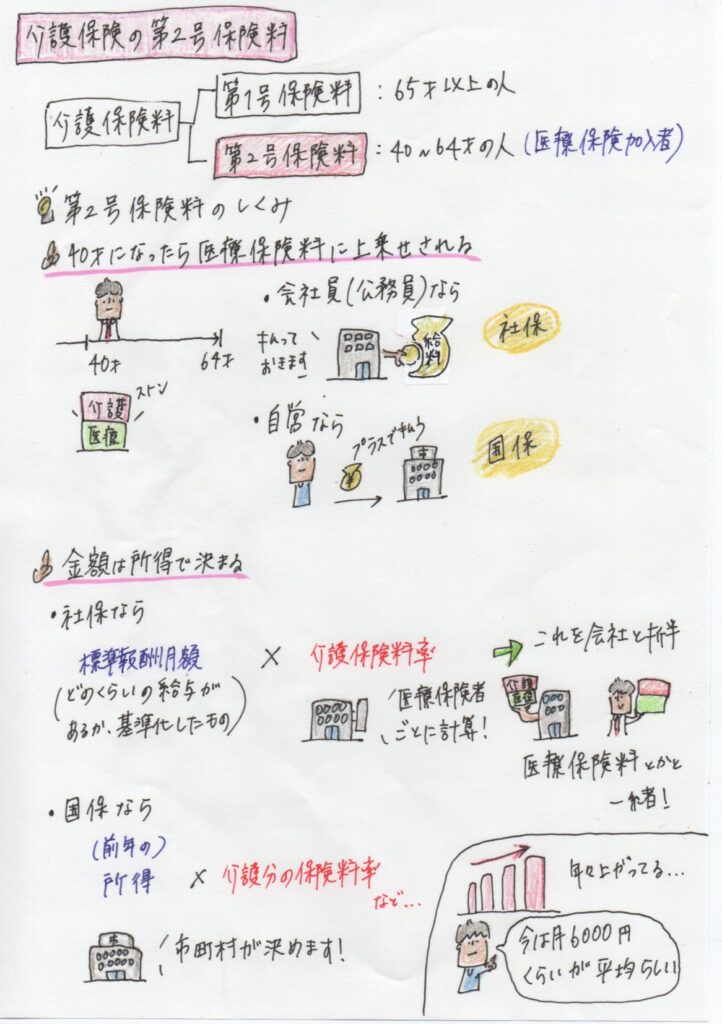 介護保険の第2号保険料
介護保険料
第1号保険料：65才以上の人
第2号保険料：40~64才の人(医療保険加入者)
第2号保険料のしくみ
40才になったら医療保険料に上乗せされる
40才
64才
介護
医療
ストン
・会社員(公務員)なら
払って
おきます
給料
社保
・自営なら
プラスで払う
¥
市
国保
金額は所得で決まる
・社保なら
標準報酬月額 × 介護保険料率
(どのくらいの給与が
あるか、基準化したもの)
医療保険者
ごとに計算!
これを会社と折半
介護
医療
医療保険料とかと
一緒者!
・国保なら
(前年の)
所得 × 介護分の保険料率
など…
市
市町村が決めます!
年々上がってる…
今は月6000円
くらいが平均らしい